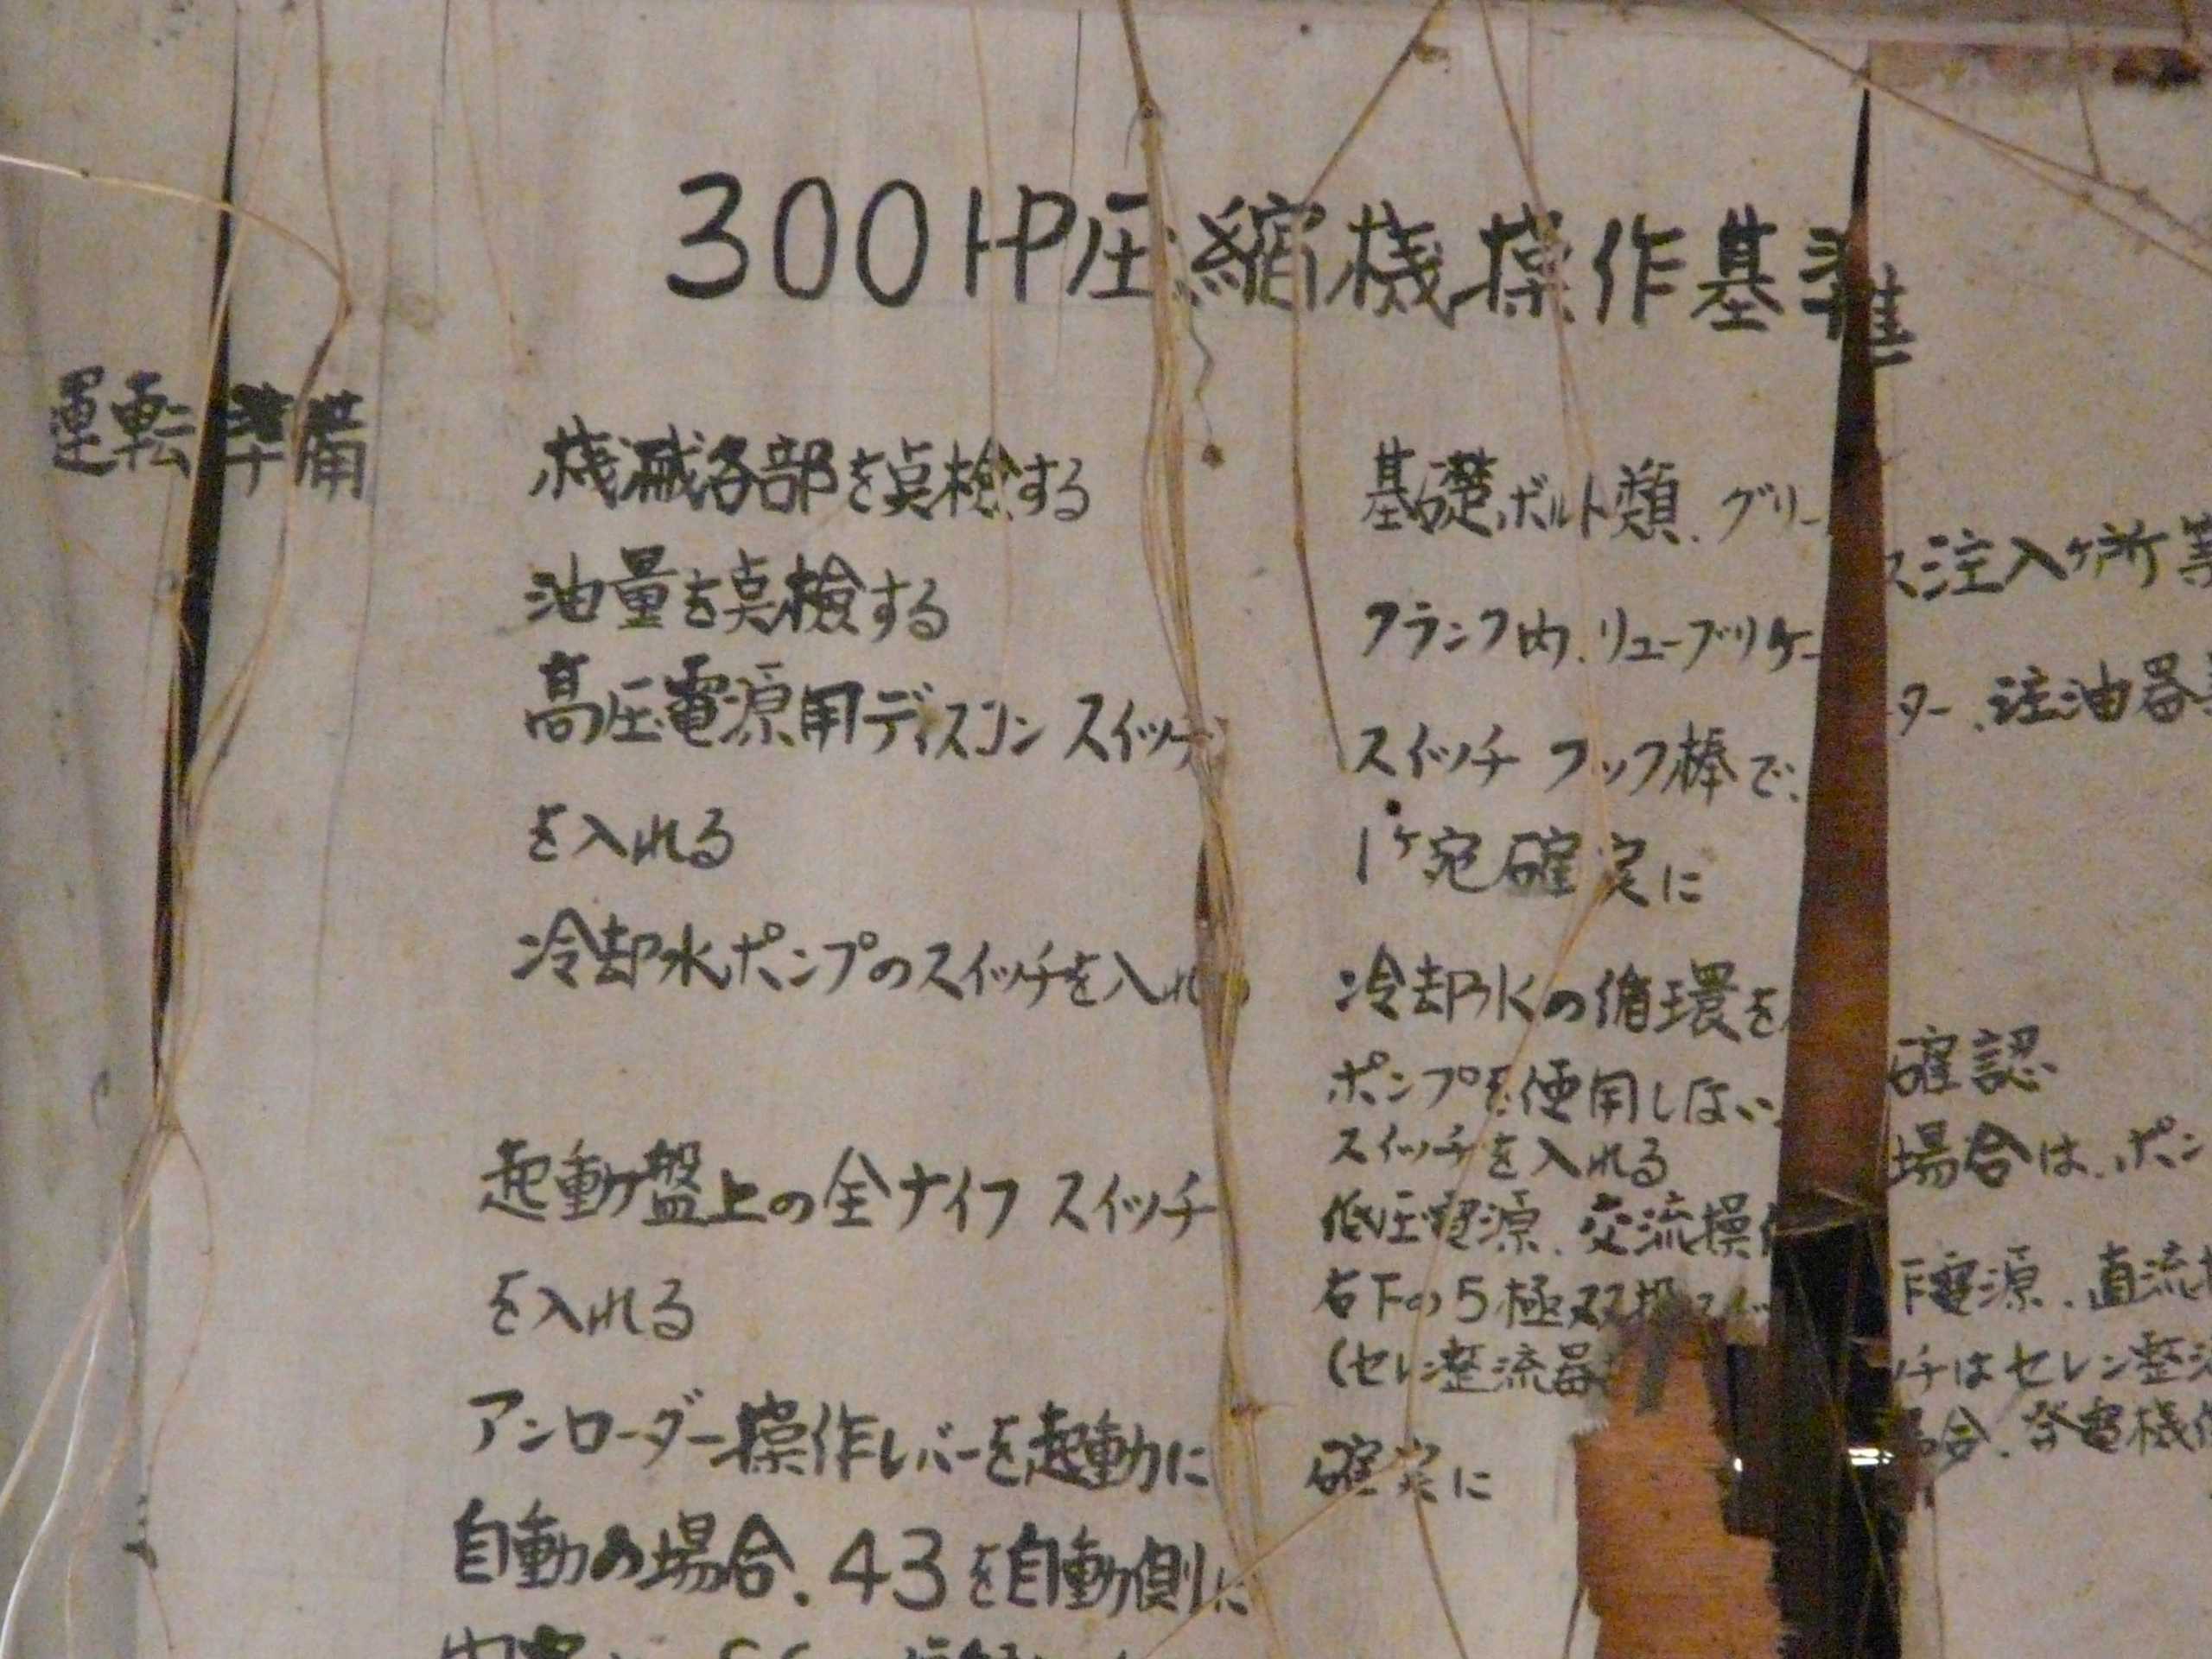 300HP圧縮機操作基準
運転準備
機械各部を点検する
基礎ボルト類.グリース注入ヶ所等
油量を点検する
クランク内.リューブリケーター.注油器
高圧電源用ディスコン スイッチ
スイッチ フック棒で、
を入れる
1ヶ宛確実に
冷却水ポンプのスイッチを入れる
冷却水の循環を確認
ポンプを使用しない場合は.ポン
スイッチを入れる
起動盤上の全ナイフ スイッチ
低圧電源.交流操作電源.直流
を入れる
右下の5極双投スイッチはセレン整流
(セレン整流器 場合.発電機
アンローダー操作レバーを起動に
確実に
自動の場合.43を自動側に